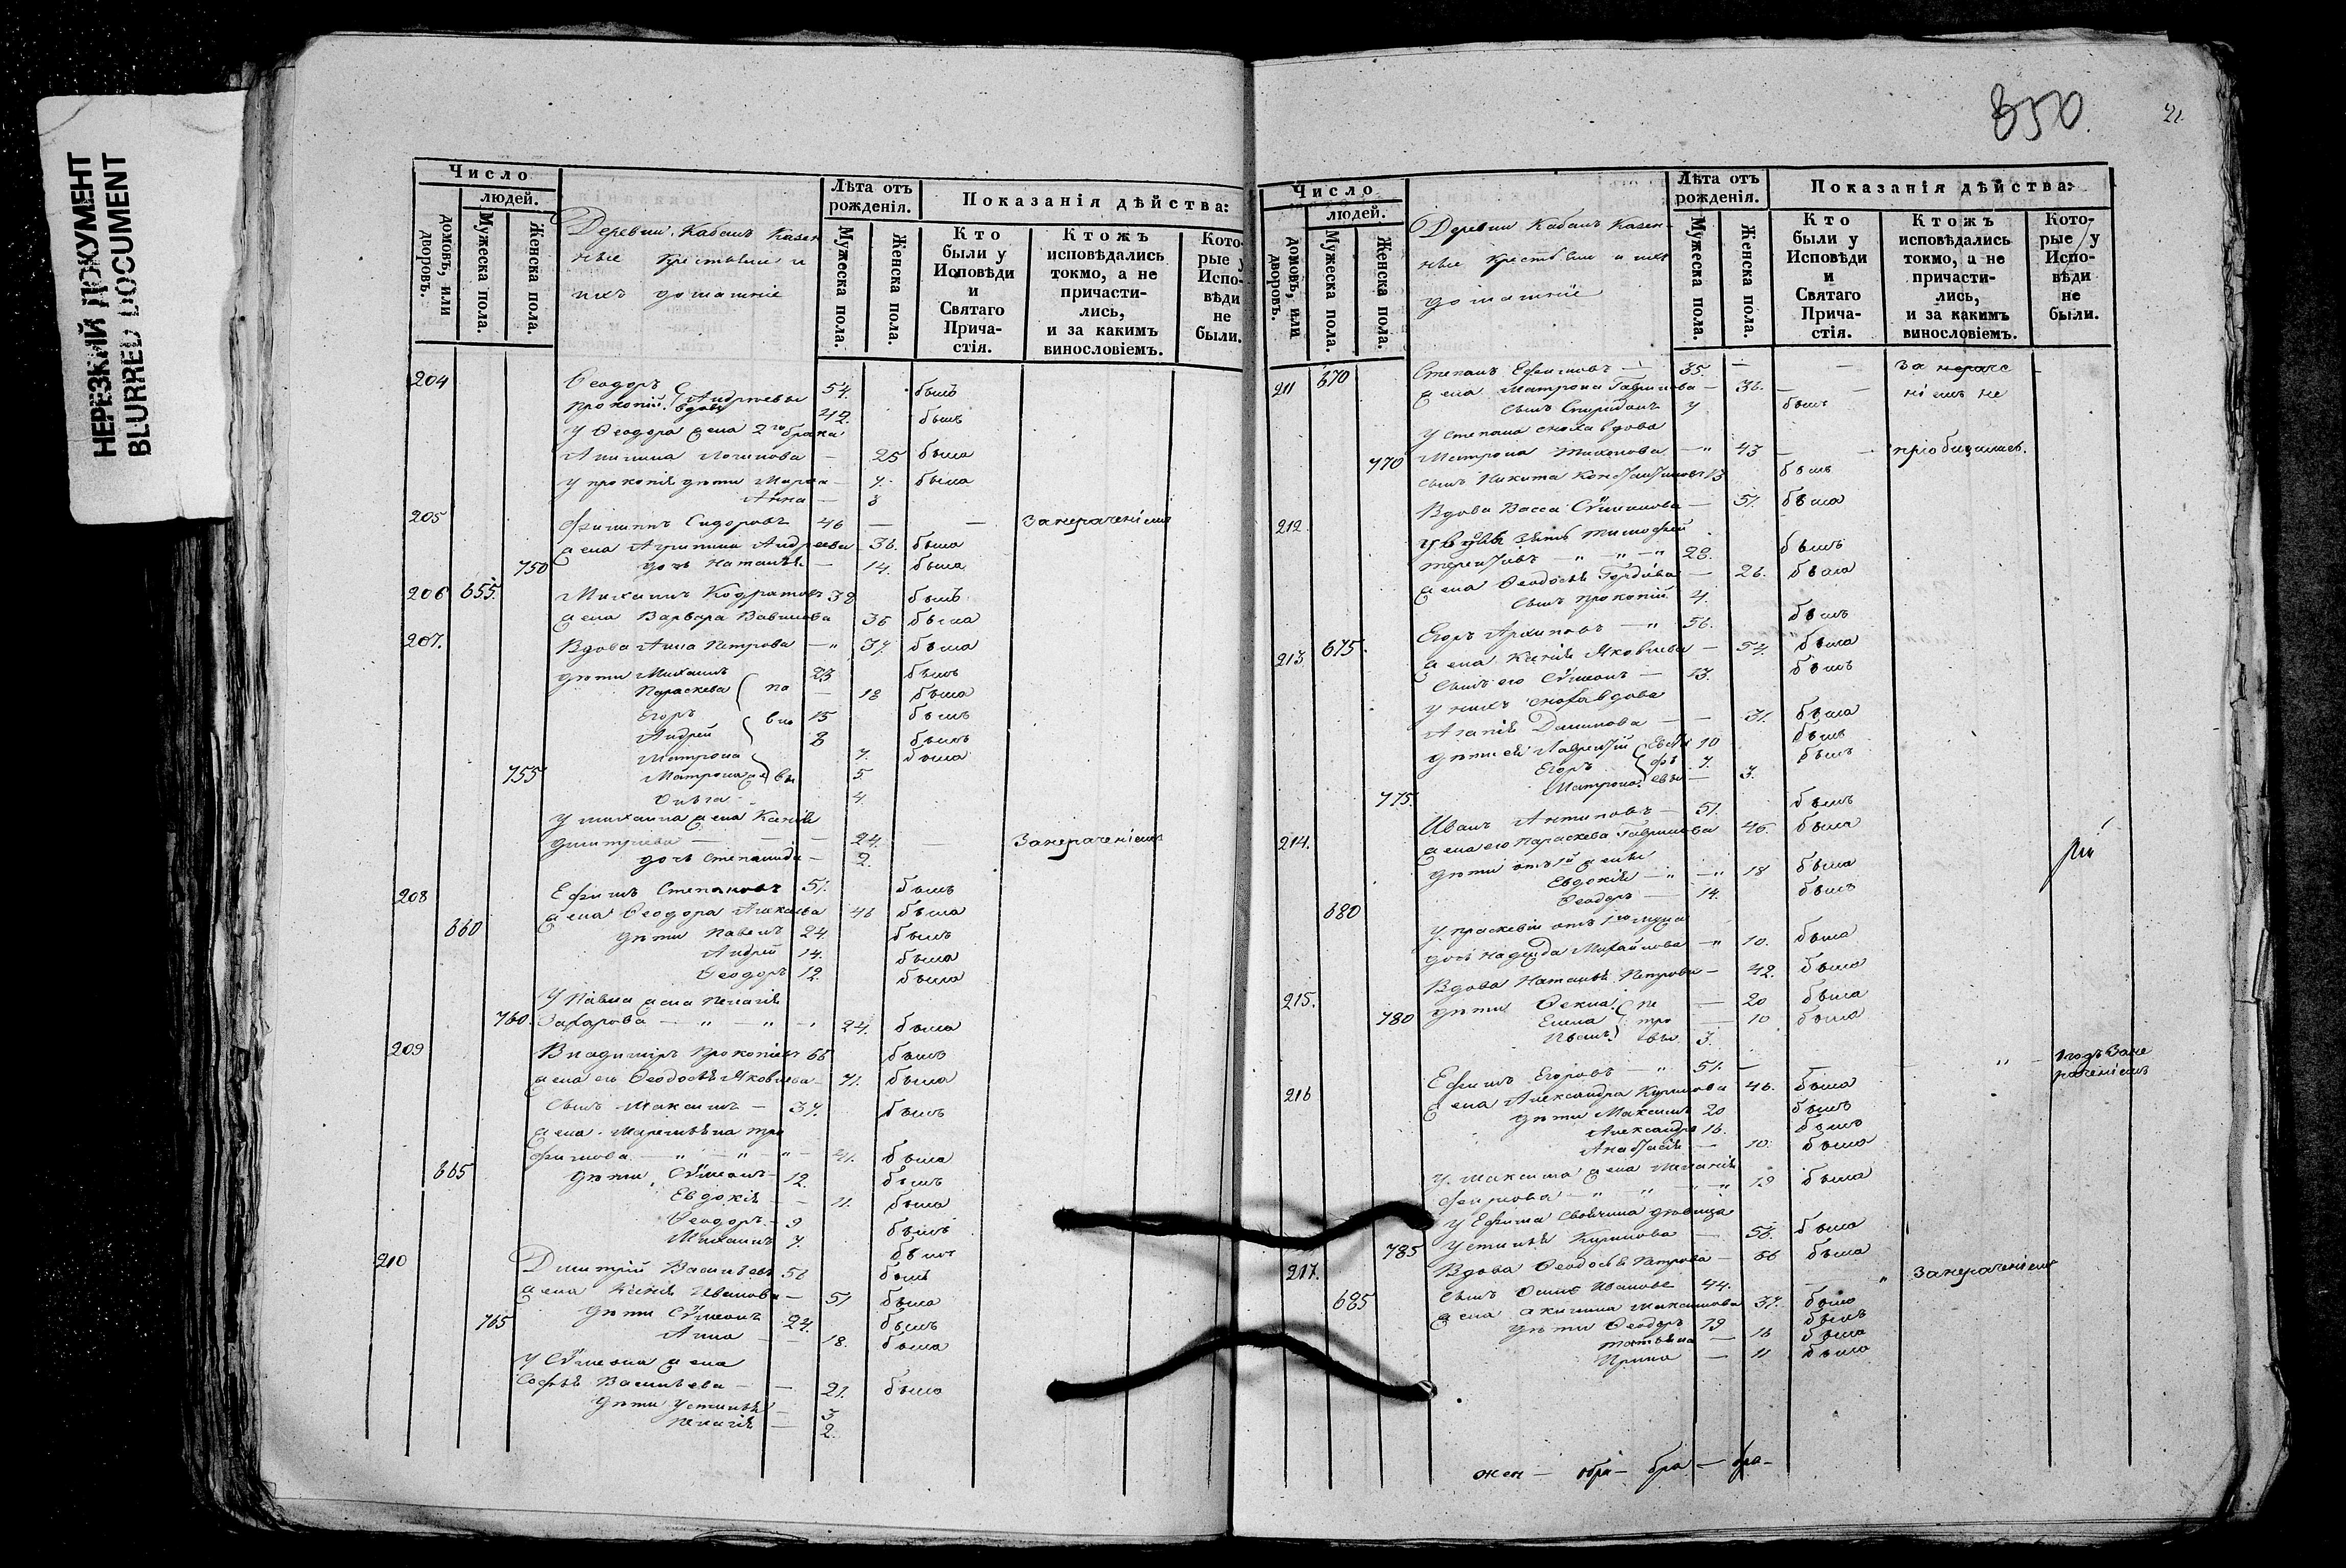 НЕРЕЗКИЙ ДОКУМЕНТ
BLURRED DOCUMENT
Число
людей.
домовъ, или дворовъ.
Мужеска пола.
Женска пола.
Деревни Кабанъ Казен
ные крестьяне и
ихъ домашніе
Лѣта отъ рожденія.
Мужеска пола.
Женска пола.
Показанія дѣйства:
Кто были у Исповѣди и Святаго Причастія.
Ктожъ исповѣдались токмо, а не причастились, и за какимъ винословіемъ.
Которые у Исповѣди не были.
204 Ѳеодоръ 54. былъ
Прокопій вдовъ Андреевы 42. былъ
У Ѳеодора жена 2го брака
Акилина Логинова — 25 была
у Прокопія дѣти Марья — 7. была
Анна — 3
205 Филиппъ Сидоровъ 46 — — Занераченіемъ
жена Агрипина Андреева 36. была
750 дочь Наталья — 14. была
206 655. Михаилъ Кодратовъ 38 былъ
жена Варвара Вавилова 36 была
207. Вдова Анна Петрова — " 37. была
дѣти Михаилъ 23 былъ
Параскева — 18 была
Егоръ 15 былъ
Андрей 8 былъ
Матрона 7. была
755 Матрона 5.
Ольга 4.
У Михаила жена Ксенія
Дмитріева — — 24. — Занераченіемъ
дочь Степанида — 2.
208 Ефимъ Степановъ 51. былъ
жена Ѳеодора 46 была
660 дѣти Павелъ 24. былъ
Андрей 14. была
Ѳеодоръ 12. была
У Павла жена Пелагія
760. Захарова — " " 24. была
209 Владимиръ Прокопіевъ 66 былъ
жена его Ѳеодосья Яковлева — 71. была
Сынъ Максимъ — 37. былъ
жена Маремьяна Тро
фимова — " — " — " — 41. была
665 дѣти Сѵмеонъ — 12. былъ
Евдокія — — 11. была
Ѳеодоръ — 9 былъ
Михаилъ 7. былъ
210 Дмитрій Васильевъ 56 былъ
жена Ксенія Иванова — 51 была
дѣти Сѵмеонъ 24. былъ
765 Анна — — 18. была
У Сѵмеона жена
Софья Васильева — — 21. была
дѣти Устинья — 3
Пелагія — 2.
350.
21
Число
людей.
домовъ, или дворовъ.
Мужеска пола.
Женска пола.
Деревни Кабанъ Казен-
ные крестьяне и ихъ
домашніе
Лѣта отъ рожденія.
Мужеска пола.
Женска пола.
Показанія дѣйства:
Кто были у Исповѣди и Святаго Причастія.
Ктожъ исповѣдались токмо, а не причастились, и за какимъ винословіемъ.
Которые у Исповѣди не были.
211 670 Степанъ Ефимовъ — 35. — — За нераче —
жена Матрона Гаврилова — 36. — — ніемъ не
сынъ Спиридонъ 7 былъ
У Степана сноха вдова
770 Матрона Тихонова — " 43 — — пріобщились.
сынъ Никита Константиновъ 13 былъ
212 Вдова Васса Сѵмионова — 51. была
У вдовы зять Тимофей
Терентіевъ — " — " — " 28. былъ
жена Ѳеодосья Гордѣева — 26. была
сынъ Прокопій 4.
213 675. Егоръ Архиповъ — " 56. былъ
жена Ксенія Яковлева — 54. была
Сынъ его Сѵмеонъ — 13. былъ
У нихъ сноха вдова
Агапія Данилова — — 31. была
дѣти ей Лаврентій 10 былъ
Егоръ 7. былъ
775. Матрона — 3.
214. Иванъ Антиповъ — 51. былъ
жена его Параскева Гаврилова 46. была
дѣти отъ 1й жены
Евдокія — " — " 18 была
680 Ѳеодоръ — 14. былъ
У Праскевіи отъ 1го мужа
дочь Надежда Михайлова — " 10. была
215. Вдова Наталья Петрова — 42. была
780 дѣти Ѳекла — 20 была
Елена — 10 была
Иванъ 3.
216 Ефимъ Егоровъ — " 51. — — — " — 1годъ Зане
раченіемъ
жена Александра Курилова 46. была
дѣти Максимъ 20 былъ
Александръ 16. былъ
Анастасія — 10. была
У Максима жена Меланія
Фирсова — " — " — " — " 19 была
У Ефима своячина дѣвица
785 Устинья Курилова — 56. была
217. Вдова Ѳеодосья Петрова — 66 была
685 сынъ Осипъ Ивановъ 44. — " Занераченіемъ
жена Акилина Максимова 37. была
дѣти Ѳеодоръ 19 былъ
Татьяна — 16 была
Ирина — 11 была